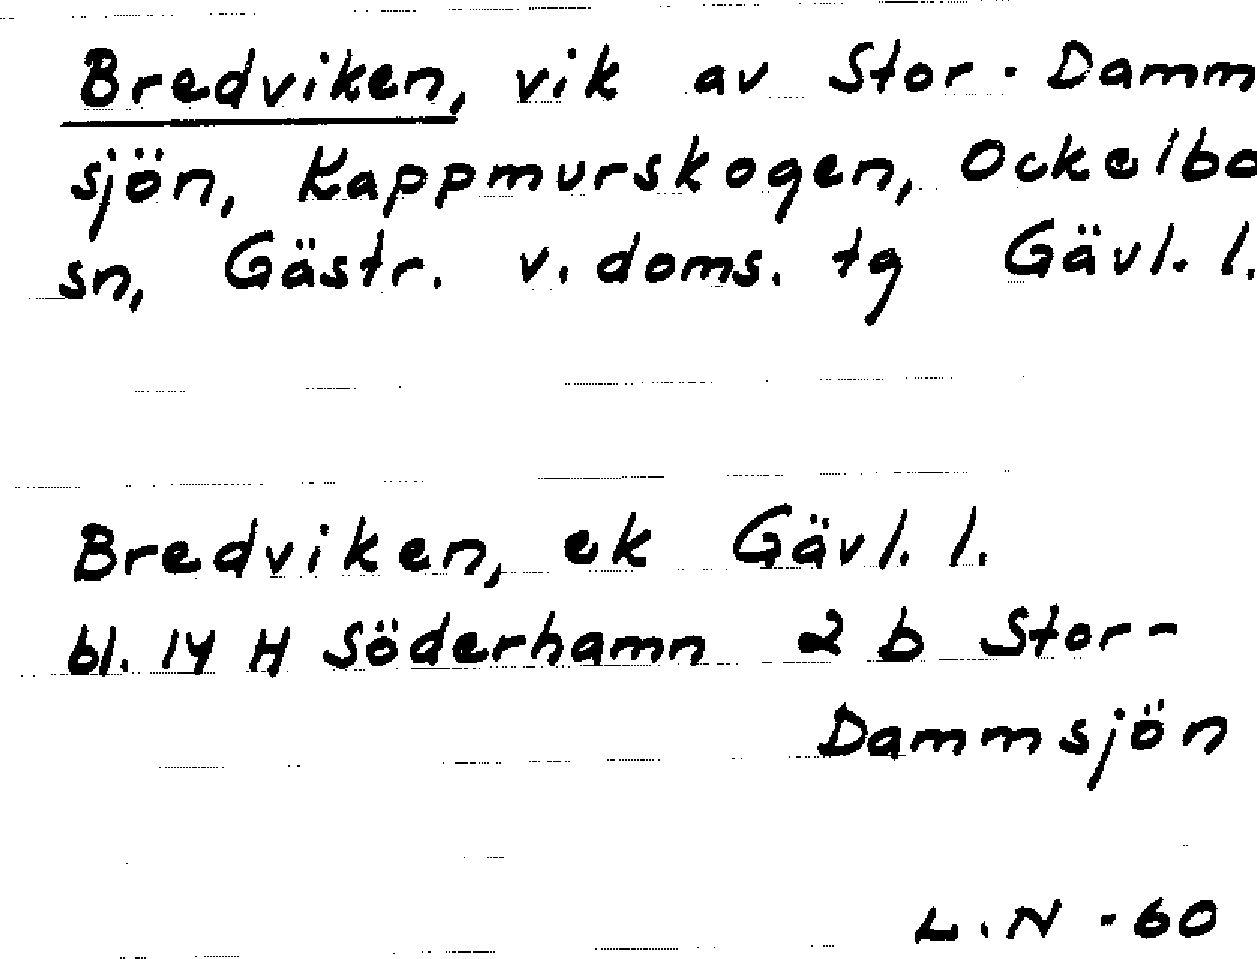 Bredviken, vik av Stor-Damm
sjön, Kappmurskogen, Ockelbo
sn, Gästr. v. doms. tg Gävl. l.
Bredviken, ek Gävl. l.
bl. 14 H Söderhamn 2 b Stor-
Dammsjön
L.N -60